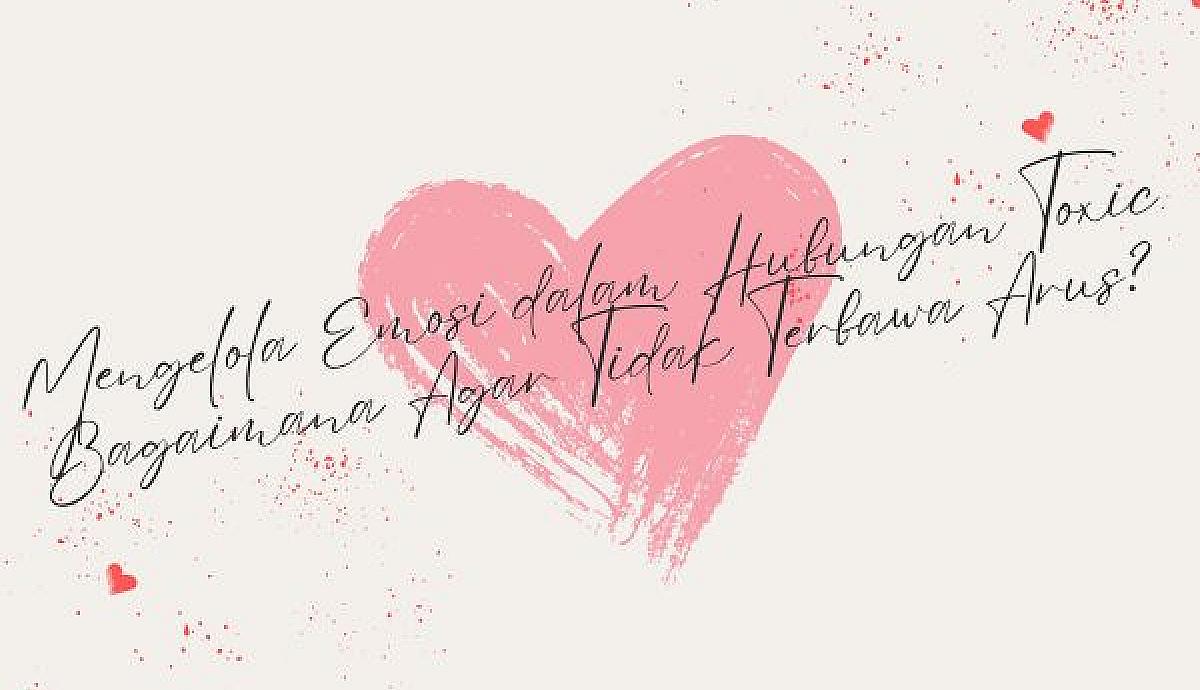 Mengelola Emosi dalam Hubungan Toxic
Bagaimana Agar Tidak Terbawa Arus?